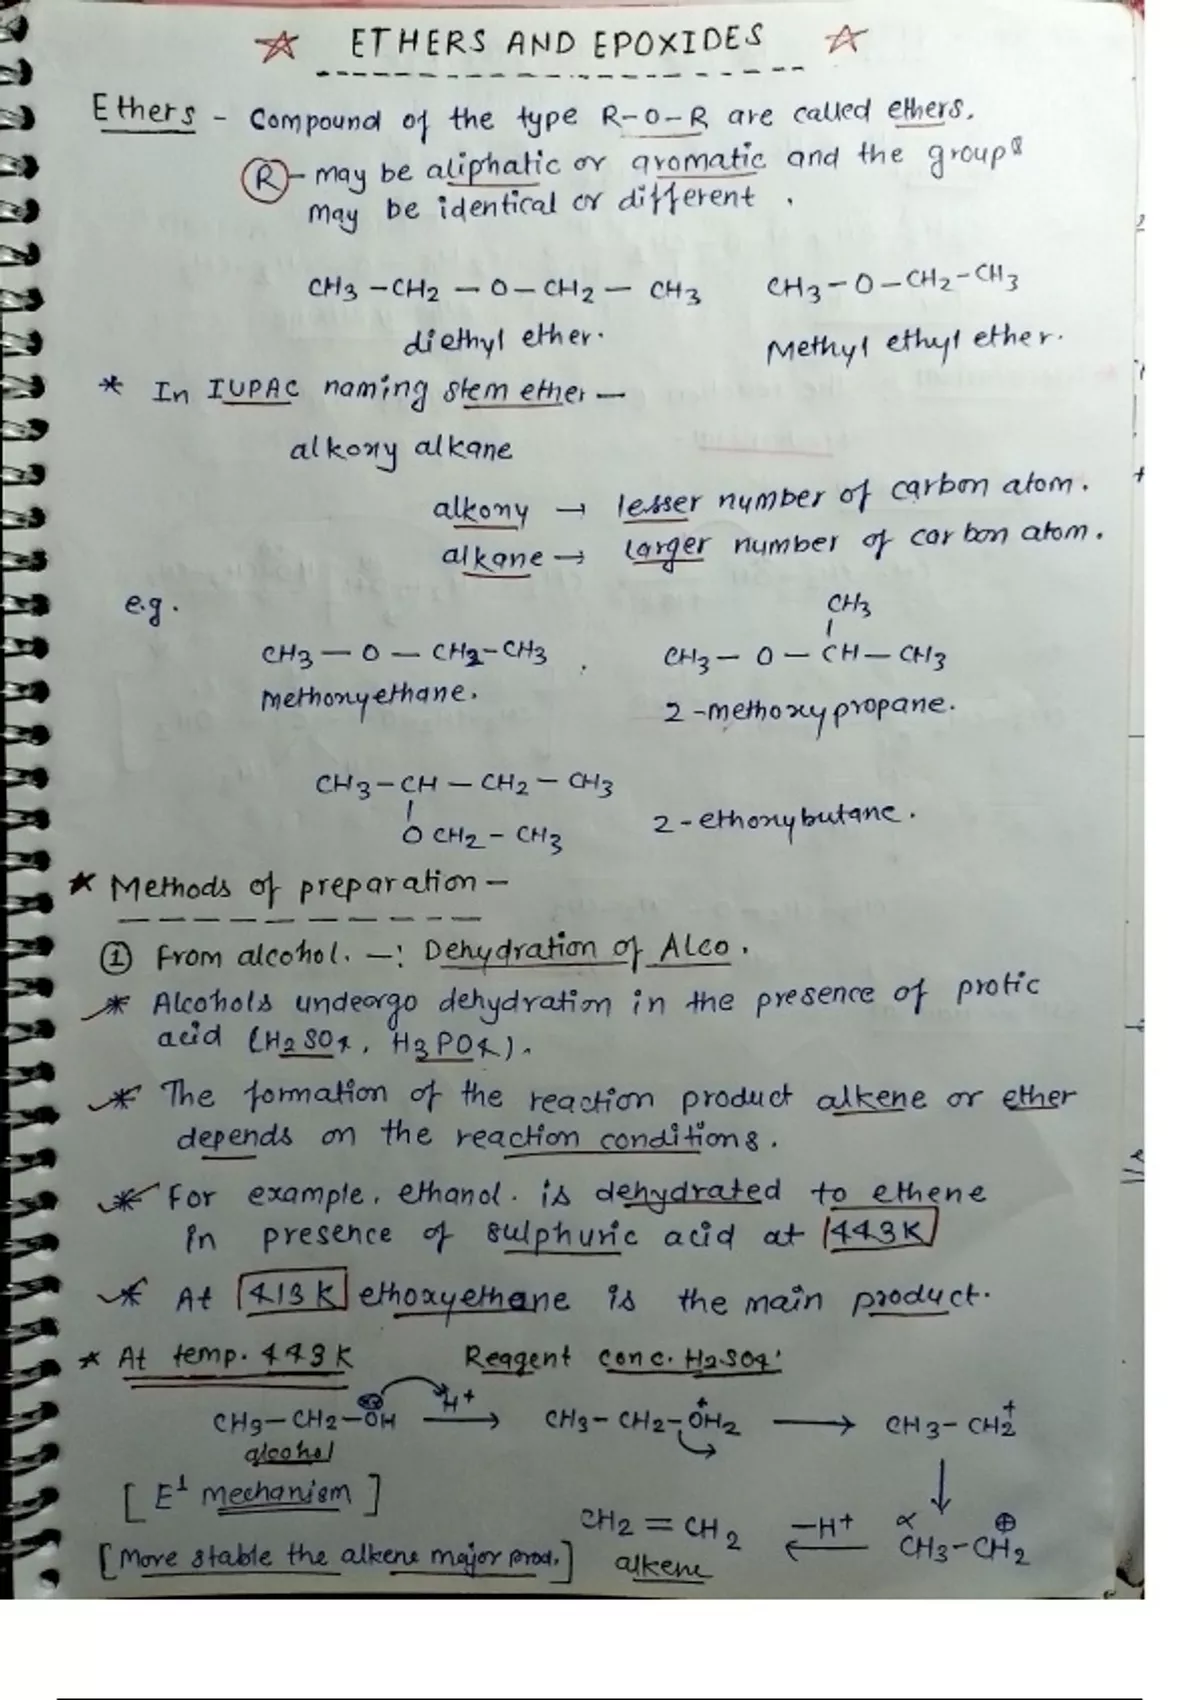 ETHERS AND EPOXIDES
Ethers - Compound of the type R-O-R are called ethers.
R - may be aliphatic or aromatic and the groups
may be identical or different.
CH3 - CH2 - O - CH2 - CH3    CH3 - O - CH2 - CH3
diethyl ether.    Methyl ethyl ether.
* In IUPAC naming stem ether —
alkoxy alkane
alkoxy → lesser number of carbon atom.
alkane → larger number of carbon atom.
e.g.
CH3
|
CH3 — O — CH2 - CH3 .    CH3 — O — CH — CH3
methoxyethane.    2-methoxypropane.
CH3 - CH — CH2 — CH3
|
OCH2 - CH3    2-ethoxybutane.
* Methods of preparation —
① From alcohol. —: Dehydration of Alco.
* Alcohols undeorgo dehydration in the presence of protic
acid (H2SO4, H3PO4).
* The formation of the reaction product alkene or ether
depends on the reaction conditions.
* For example, ethanol. is dehydrated to ethene
in presence of sulphuric acid at 443K
* At 413 K ethoxyethane is the main product.
* At temp. 443 K    Reagent conc. H2SO4.
CH3 - CH2 - ÖH —H+→ CH3 - CH2 - O+H2 → CH3 - CH2+
alcohol    ↓
[ E1 mechanism ]
CH2 = CH2 ←-H+ αCH3 - CH2⊕
[More stable the alkene major prod.]    alkene